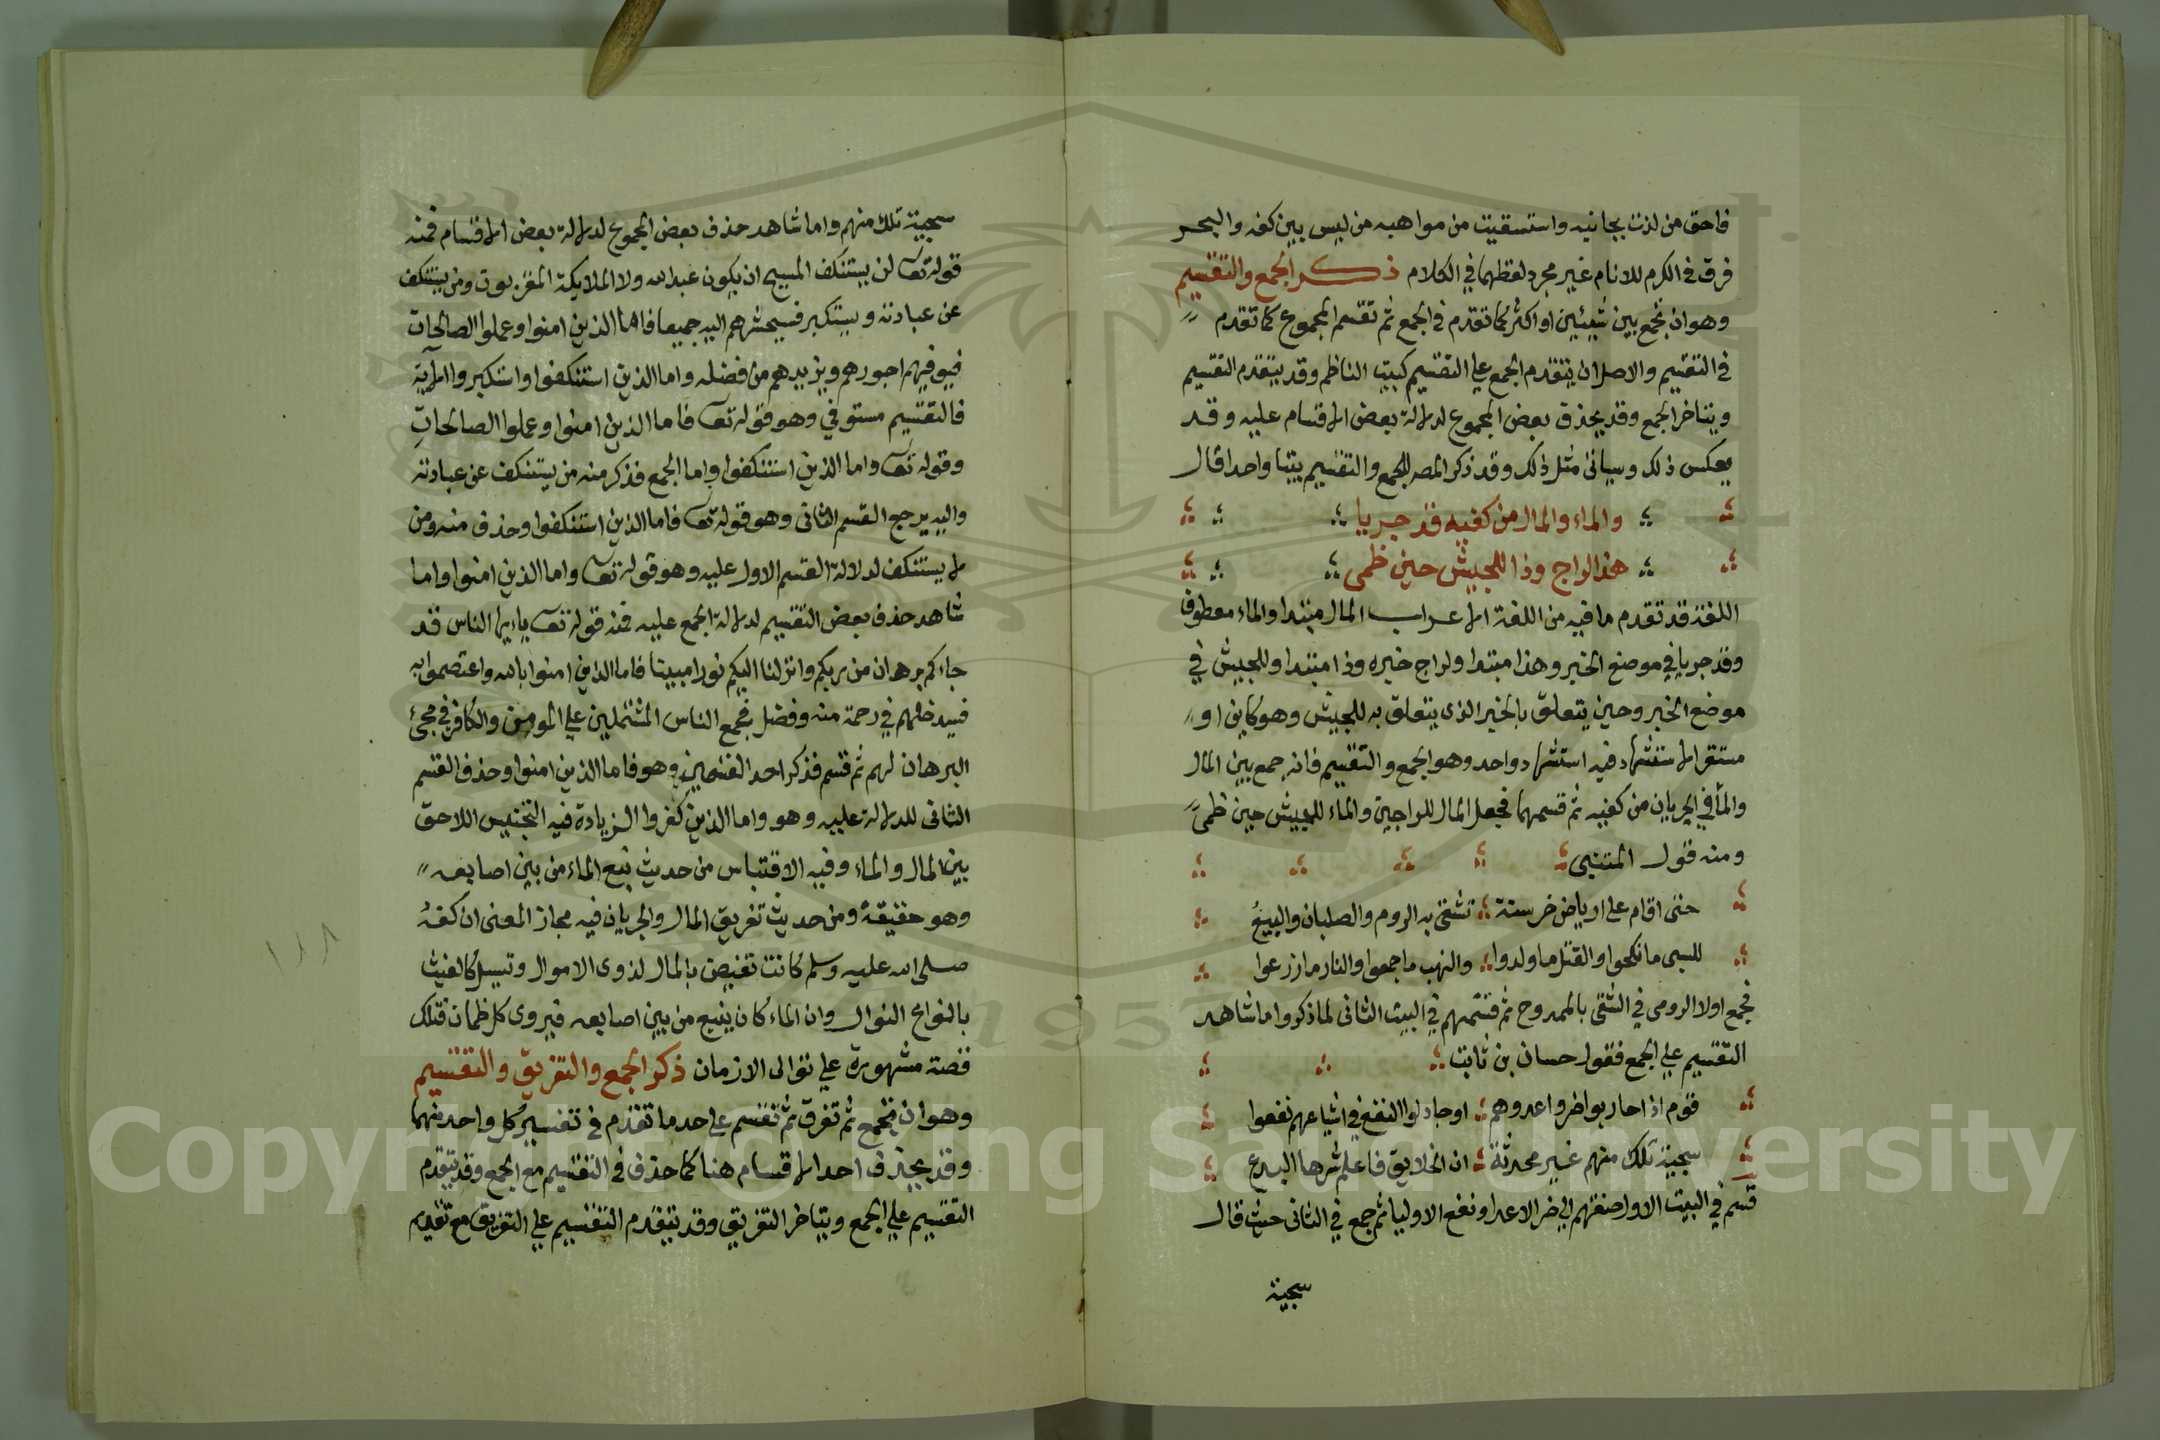 فاحق من لذت بجانبه واستسقيت من مواهبه من ليس بين كفه والبحر
فرق في الكرم للانام غير مجرد لفظهما في الكلام ذكر الجمع والتقسيم
وهو ان تجمع بين شيئين او اكثر كما تقدم في الجمع ثم تقسم المجموع كما تقدم
في التقسيم والاصل ان يتقدم الجمع علي التقسيم كبيت الناظم وقد يتقدم التقسيم
ويتاخر الجمع وقد يحذف بعض المجموع لدلالة بعض الاقسام عليه وقد
يعكس ذلك وسياتى مثل ذلك وقد ذكر المص للجمع والتقسيم بيتا واحدا قال
والماء والمال من كفيه قد جريا
هذا لراج وذا للجيش حين ظمى
اللغة قد تقدم ما فيه من اللغة الاعراب المال مبتدا والماء معطوفا
وقد جريا في موضع الخبر وهذا مبتدا ولراج خبره وذا مبتدا وللجيش في
موضع الخبر وحين يتعلق بالخبر الذى يتعلق به للجيش وهو كاين او
مستقر الاستشهاد فيه استشهاد واحد وهو الجمع والتقسيم فانه جمع بين المال
والما في الجريان من كفيه ثم قسمهما فجعل المال للراجين والماء للجيش حين ظمى
ومنه قول المتنبى
حتى اقام على ارباض خرسنة تشقى به الروم والصلبان والبيع
للسبى ما نكحوا والقتل ما ولدوا والنهب ما جمعوا والنار ما زرعوا
فجمع اولا الرومى في الشقى بالممدوح ثم قسمهم في البيت الثانى لما ذكر واما شاهد
التقسيم علي الجمع فقول حسان بن ثابت
قوم اذا حاربوا ضروا عدوهم او حاولوا النفع في اشياعهم نفعوا
سجية تلك منهم غير محدثة ان الخلايق فاعلم شرها البدع
قسم في البيت الاول صفتهم الي ضر الاعدا ونفع الاوليا ثم جمع في الثانى حيث قال
سجية
سجية تلك منهم واما شاهد حذف بعض المجموع لدلالة بعض الاقسام فمنه
قوله تعا لن يستنكف المسيح ان يكون عبدا لله ولا الملايكة المقربون ومن يستنكف
عن عبادته ويستكبر فسيحشرهم اليه جميعا فاما الذين امنوا وعملوا الصالحات
فيوفيهم اجورهم ويزيدهم من فضله واما الذين استنكفوا واستكبروا الآية
فالتقسيم مستوفي وهو قوله تعا فاما الذين امنوا وعملوا الصالحات
وقوله تعا واما الذين استنكفوا واما الجمع فذكر منه من يستنكف عن عبادته
واليه يرجع القسم الثانى وهو قوله تعا فاما الذين استنكفوا وحذف منه ومن
لا يستنكف لدلالة القسم الاول عليه وهو قوله تعا واما الذين امنوا واما
شاهد حذف بعض التقسيم لدلالة الجمع عليه فمنه قوله تعا ياءيها الناس قد
جاءكم برهان من ربكم وانزلنا اليكم نورا مبينا فاما الذين امنوا بالله واعتصموا به
فسيدخلهم في رحمة منه وفضل فجمع الناس المشتملين علي المومن والكافر في مجئ
البرهان لهم ثم قسم فذكر احد القسمين وهو فاما الذين امنوا وحذف القسم
الثانى للدلالة عليه وهو واما الذين كفروا الزيادة فيه التجنيس اللاحق
بين المال والماء وفيه الاقتباس من حديث نبع الماء من بين اصابعه
وهو حقيقة ومن حديث تفريق المال والجريان فيه مجاز المعنى ان كفه
صلى الله عليه وسلم كانت تفيض بالمال لذوى الاموال وتسيل كالغيث
بانواع النوال وان الماء كان ينبع من بين اصابعه فيروى كل ظمان فتلك
قصة مشهورة علي توالى الازمان ذكر الجمع والتفريق والتقسيم
وهو ان تجمع ثم تفرق ثم تقسم على حد ما تقدم في تفسير كل واحد منهما
وقد يحذف احد الاقسام هنا كما حذف في التقسيم مع الجمع وقد يتقدم
التقسيم علي الجمع ويتاخر التفريق وقد يتقدم التقسيم علي التفريق مع تقديم
١١٨
1957
Copyright © King Saud University